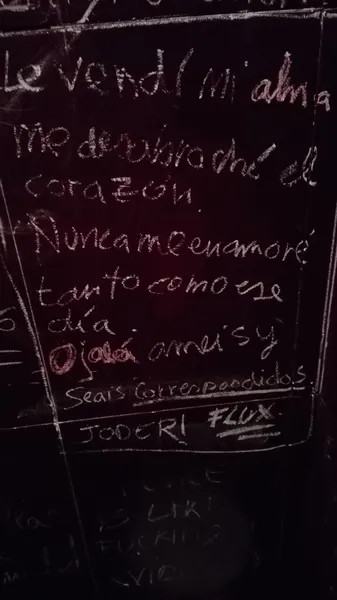 Le vendí mi alma
me desabroché el
corazón.
Nunca me enamoré
tanto como ese
día.
Ojalá ameis y
Seais Correspondidos
JODER! FLUX
LIKE
FUCKING